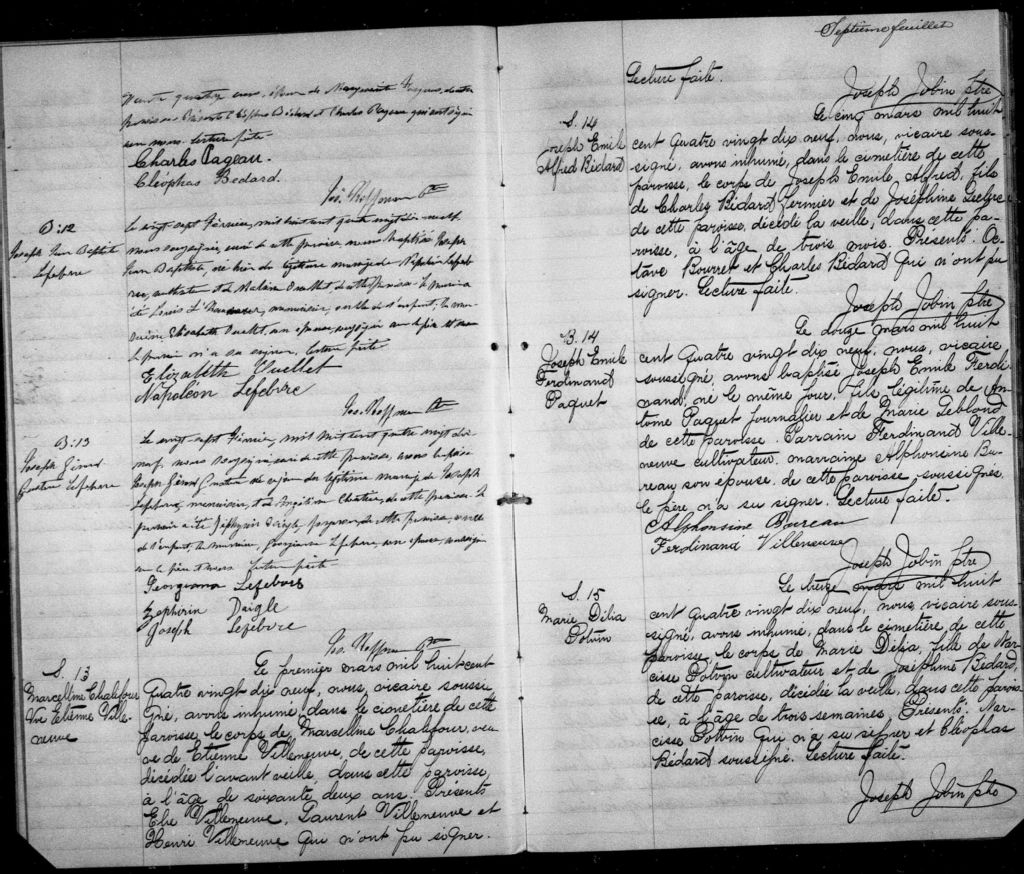 trente quatre ans, époux de Marguerite
présents Cléophas Bédard et Charles Pageau qui ont signé
avec nous. Lecture faite.
Charles Pageau.
Cléophas Bedard.
B: 12
Joseph Jean Baptiste
Lefebvre
Le vingt sept Février, mil huit cent quatre vingt dix neuf
nous soussigné, curé de cette paroisse, avons baptisé Joseph
Jean Baptiste, né hier du légitime mariage de Napoléon Lefeb-
vre, et de Ouellet de cette paroisse. Le parrain a
été Louis menuisier, oncle de l'enfant; la mar-
raine Elizabeth Ouellet, son épouse, soussignée avec le père et nous
Le parrain n'a su signer, lecture faite
Elizabeth Ouellet
Napoléon Lefebvre
B: 13
Joseph Gérard
Gustave Lefebvre
Le vingt-sept Février, mil huit cent quatre vingt dix
neuf, nous soussigné, curé de cette paroisse, avons baptisé
Joseph Gérard Gustave né du légitime mariage de Joseph
Lefebvre, menuisier, et de de cette paroisse. Le
parrain a été Zéphirin Daigle de cette paroisse, oncle
de l'enfant, la marraine, Georgiana Lefebvre, son épouse, soussignés
avec le père et nous lecture faite
Georgiana Lefebvre
Zephirin Daigle
Joseph Lefebvre
S. 13
Marcelline Chalifour
Vve Etienne Ville-
neuve
Le premier mars mil huit cent
quatre vingt dix neuf, nous, vicaire soussi
gné, avons inhumé, dans le cimetière de cette
paroisse, le corps de Marcelline Chalifour, veu-
ve de Etienne Villeneuve, de cette paroisse,
décédée l'avant veille, dans cette paroisse,
à l'âge de soixante deux ans. Présents
Elie Villeneuve, Laurent Villeneuve et
Henri Villeneuve qui n'ont pu signer.
Septième feuillet
Lecture faite.
Joseph Jobin Ptre
S. 14
Joseph Emile
Alfred Bédard
Le cinq mars mil huit
cent quatre vingt dix neuf, nous, vicaire sous-
signé, avons inhumé, dans le cimetière de cette
paroisse, le corps de Joseph Emile, Alfred, fils
de Charles Bédard fermier et de Joséphine Leclerc
de cette paroisse, décédé la veille, dans cette pa-
roisse, à l'âge de trois mois. Présents: Oc-
tave Bourret et Charles Bédard qui n'ont pu
signer. Lecture faite.
Joseph Jobin Ptre
B. 14
Joseph Emile
Ferdinand
Paquet
Le douze mars mil huit
cent quatre vingt dix neuf, nous, vicaire
soussigné, avons baptisé Joseph Emile Ferdi-
nand, né le même jour, fils légitime de An-
toine Paquet journalier et de Marie Leblond
de cette paroisse. Parrain Ferdinand Ville-
neuve cultivateur. marraine Alphonsine Bu-
reau son épouse, de cette paroisse soussignés
le père n'a su signer. Lecture faite.
Alphonsine Bureau
Ferdinand Villeneuve
Joseph Jobin Ptre
S. 15
Marie Délia
Potvin
Le treize mars mil huit
cent quatre vingt dix neuf, nous, vicaire sous-
signé, avons inhumé, dans le cimetière de cette
paroisse, le corps de Marie Délia, fille de Nar-
cisse Potvin cultivateur et de Joséphine Bédard,
de cette paroisse, décédée la veille, dans cette parois
se, à l'âge de trois semaines. Présents: Nar-
cisse Potvin qui n'a su signer et Cléophas
Bédard soussigné. Lecture faite.
Joseph Jobin Ptre